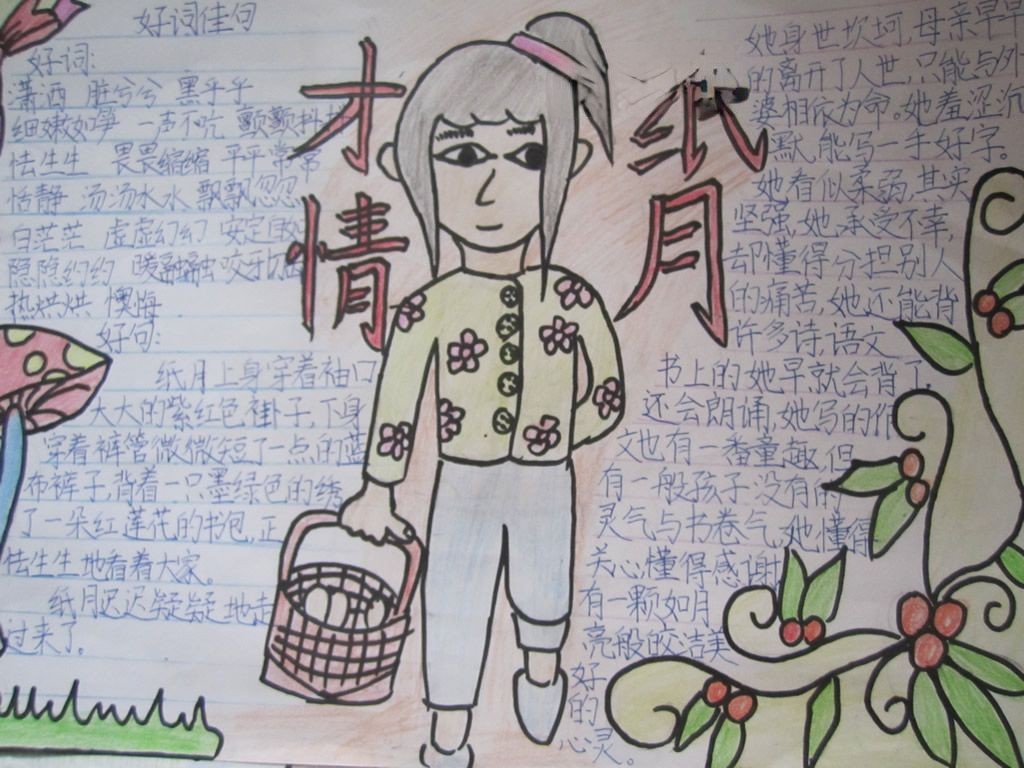 好词佳句
好词:
潇洒 脏兮兮 黑乎乎
细嫩如笋 一声不吭 颤颤抖
怯生生 畏畏缩缩 平平常常
恬静 汤汤水水 飘飘忽忽
白茫茫 虚虚幻幻 安定
隐隐约约 暖融融 咬牙切
热烘烘 懊悔
好句:
纸月上身穿着袖口
大大的紫红色褂子,下身
穿着裤管微微短了一点的蓝
布裤子,背着一只墨绿色的绣
了一朵红莲花的书包,正
怯生生地看着大家。
纸月迟迟疑疑地走
过来了。
才情
纸月
她身世坎坷,母亲早早
的离开了人世,只能与外
婆相依为命。她羞涩沉
默,能写一手好字。
她看似柔弱,其实
坚强,她承受不幸,
却懂得分担别人
的痛苦,她还能背
许多诗,语文
书上的她早就会背了,
还会朗诵,她写的作
文也有一番童趣,但
有一般孩子没有的
灵气与书卷气,她懂得
关心懂得感谢
有一颗如月
亮般皎洁美
好
的
心灵。